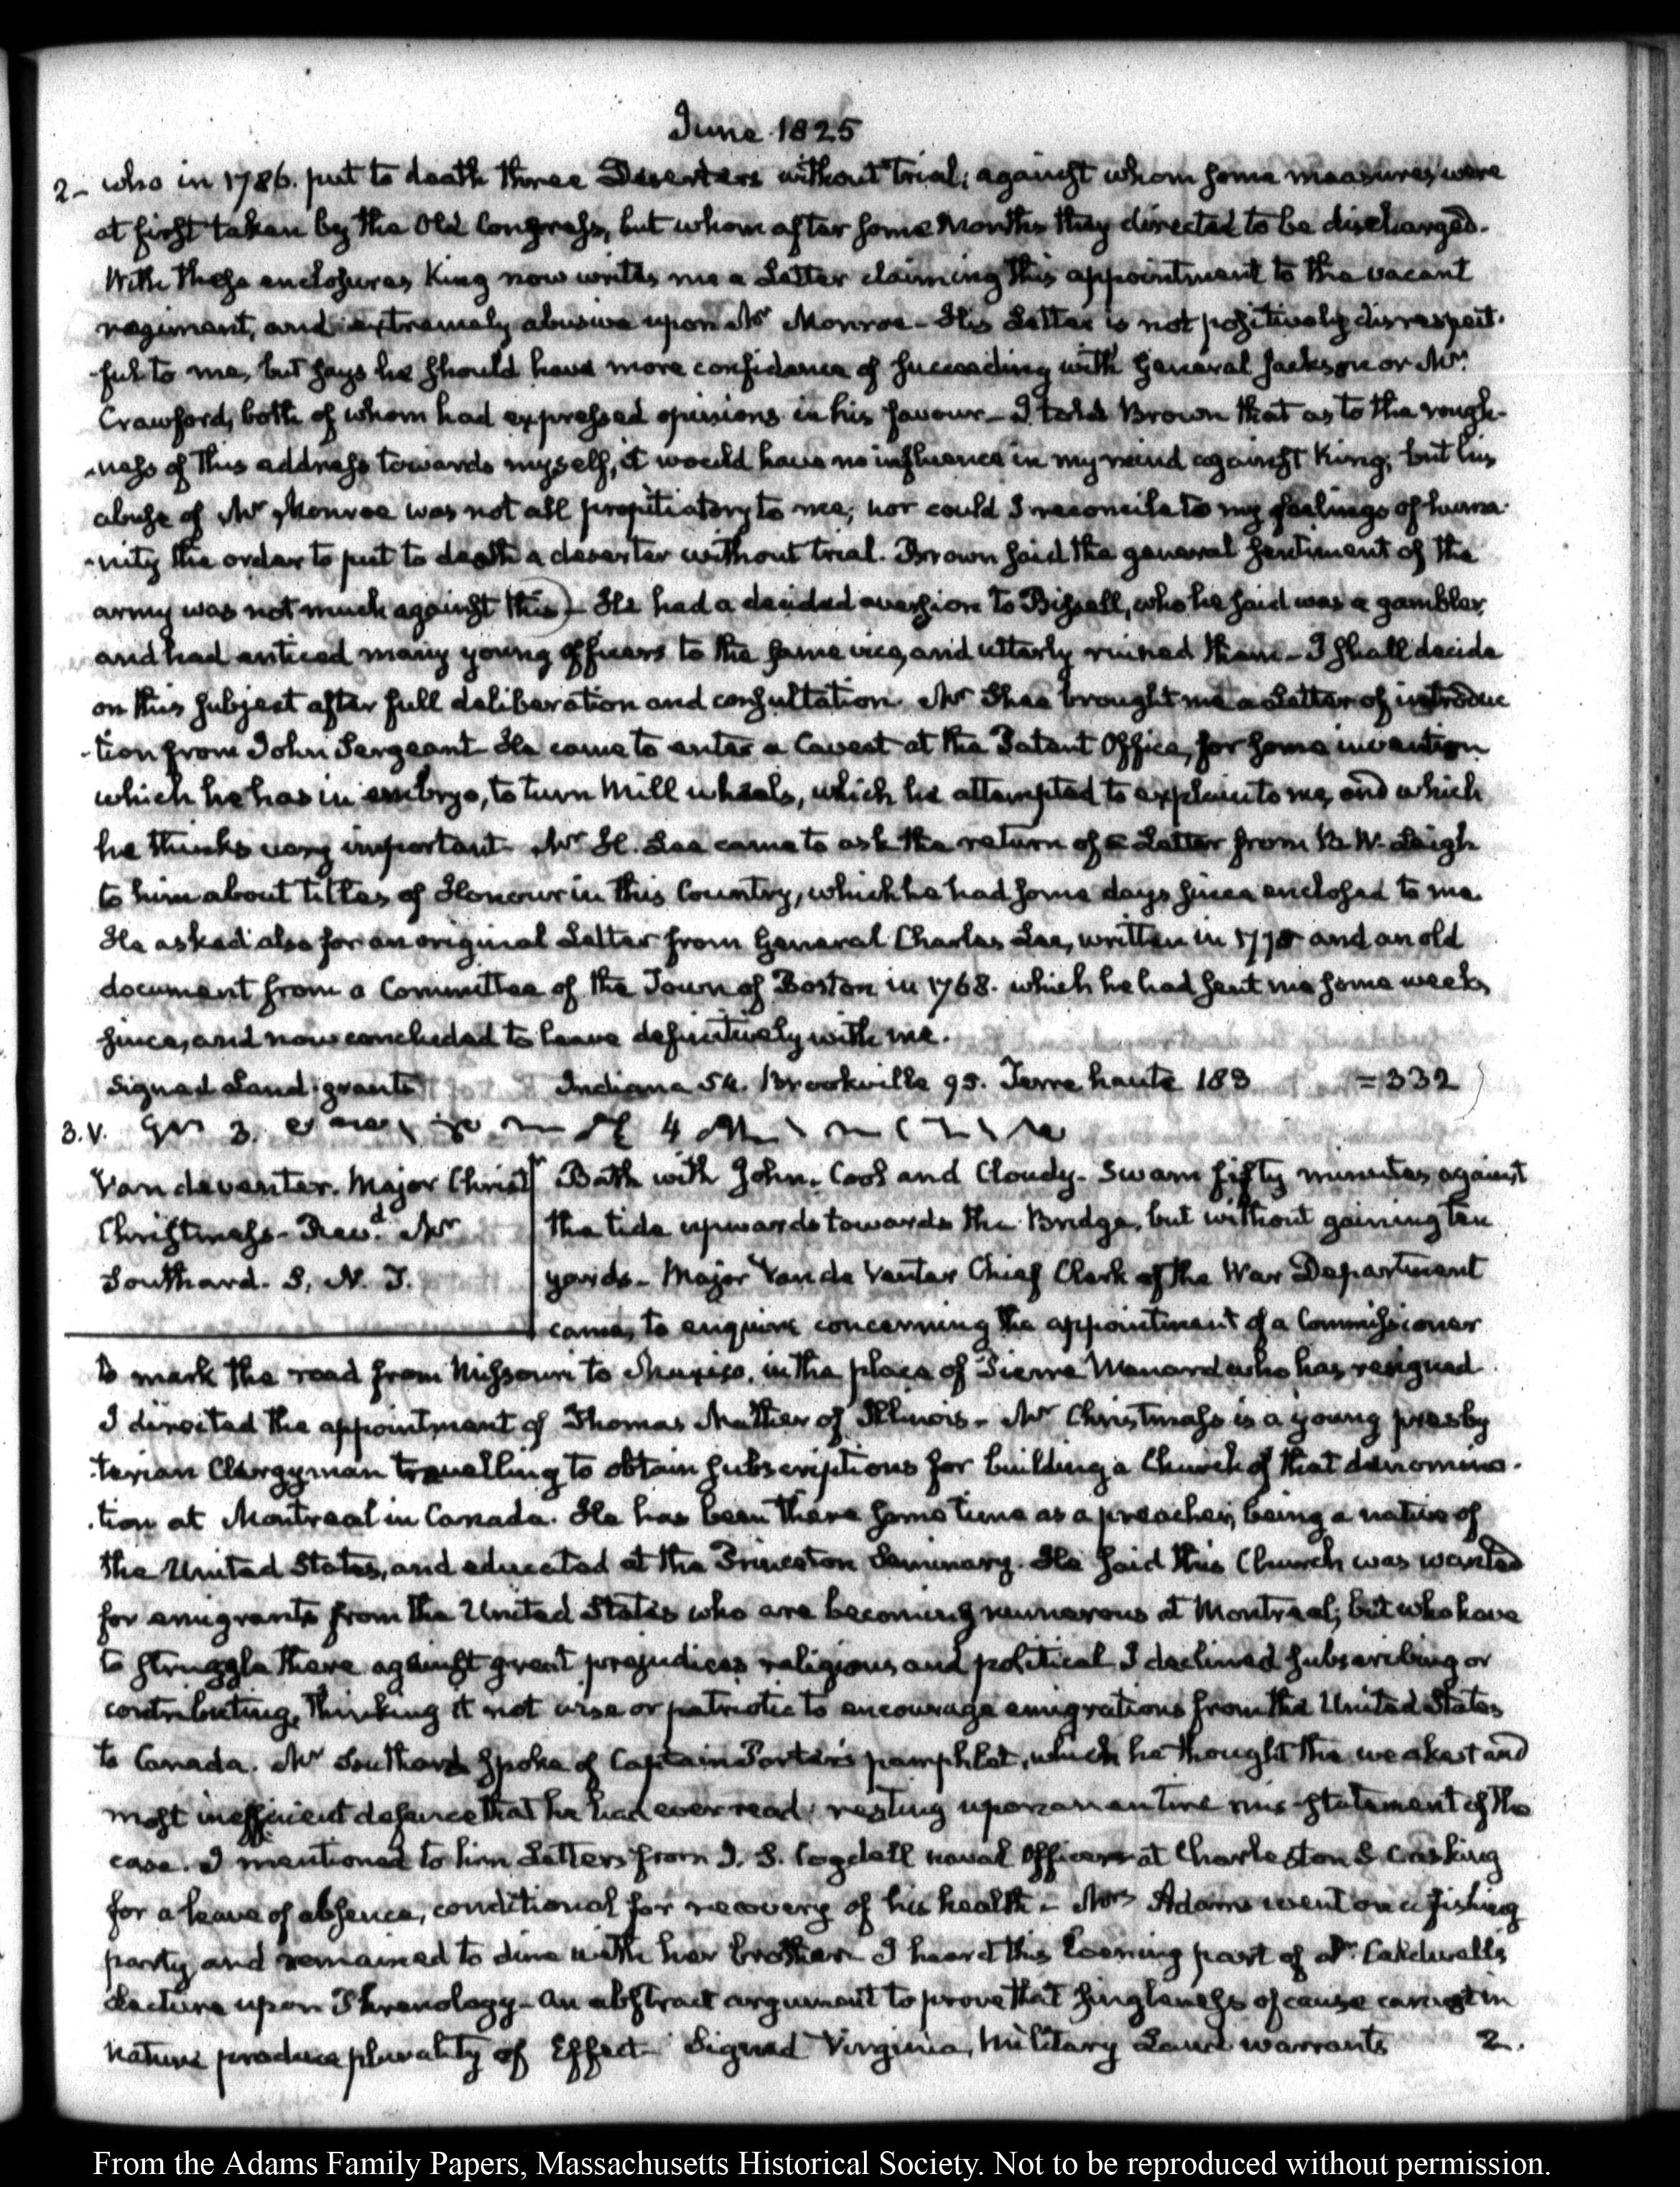 June 1825
2- who in 1786. put to death three Deserters without trial; against whom some measures were
at first taken by the Old Congress, but whom after some Months they directed to be discharged.
With these enclosures King now writes me a Letter claiming this appointment to the vacant
regiment, and extremely abusive upon Mr Monroe- His Letter is not positively disrespect-
-ful to me, but says he should have more confidence of succeeding with General Jackson or Mr
Crawford, both of whom had expressed opinions in his favour- I told Brown that as to the rough-
-ness of this address towards myself, it would have no influence in my mind against King; but his
abuse of Mr Monroe was not all propitiatory to me; nor could I reconcile to my feelings of huma-
-nity the order to put to death a deserter without trial. Brown said the general sentiment of the
army was not much against this- He had a decided aversion to Bissell, who he said was a gambler,
and had enticed many young officers to the same vice, and utterly ruined them- I shall decide
on this subject after full deliberation and consultation. Mr Shee brought me a Letter of introduc
-tion from John Sergeant- He came to enter a Caveat at the Patent Office, for some invention
which he has in embryo, to turn Mill wheels, which he attempted to explain to me, and which
he thinks very important- Mr H. Lee came to ask the return of a Letter from B. W. Leigh
to him about titles of Honour in this Country, which he had some days since enclosed to me.
He asked also for an original Letter from General Charles Lee, written in and an old
document from a Committee of the Town of Boston in 1768. which he had sent me some weeks
since, and now concluded to leave definitively with me.
Signed Land-grants Indiana 54. Brookville 95. Terre haute 183 = 332
3. V.
Van deventer. Major Christ Bath with John. Cool and Cloudy- Swam fifty minutes against
Christmass- Revd. Mr the tide upwards towards the Bridge, but without gaining ten
Southard. S. N. S. yards- Major Van de Venter Chief Clerk of the War Department
came, to enquire concerning the appointment of a Commissioner
to mark the road from Missouri to Mexico, in the place of Pierre Menard who has resigned.
I directed the appointment of Thomas Mather of Illinois- Mr Christmass is a young presby
-terian Clergyman travelling to obtain subscriptions for building a Church of that denomina-
-tion at Montreal in Canada. He has been there some time as a preacher; being a native of
the United States, and educated at the Princeton Seminary. He said this Church was wanted
for emigrants from the United States who are becoming numerous at Montreal; but who have
to struggle there against great prejudices religious and political. I declined subscribing or
contributing, thinking it not wise or patriotic to encourage emigrations from the United States
to Canada. Mr Southard spoke of Captain Porter's pamphlet, which he thought the weakest and
most inefficient defence that he had ever read; resting upon an entire mis-statement of the
case. I mentioned to him Letters from J. S. Cogdell naval Officer at Charleston S. C. asking
for a leave of absence, conditional for recovery of his health- Mrs Adams went on a fishing
party and remained to dine with her brother- I heard this Evening part of Dr. Caldwell's
Lecture upon Phrenology- An abstract argument to prove that singleness of cause cannot in
nature produce plurality of Effect- Signed Virginia, Military Land warrants 2.
From the Adams Family Papers, Massachusetts Historical Society. Not to be reproduced without permission.